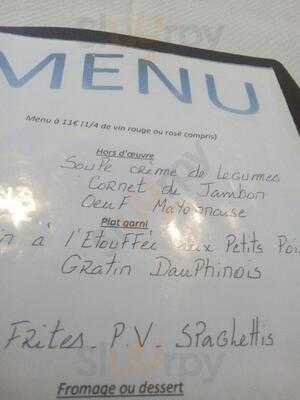 MENU
Menu à 11€ (1/4 de vin rouge ou rosé compris)
Hors d'œuvre
Soupe crème de legumes
Cornet de Jambon
Oeuf Mayonnaise
Plat garni
à l'Etouffée aux Petits
Gratin Dauphinois
Frites - P.V - Spaghettis
Fromage ou dessert